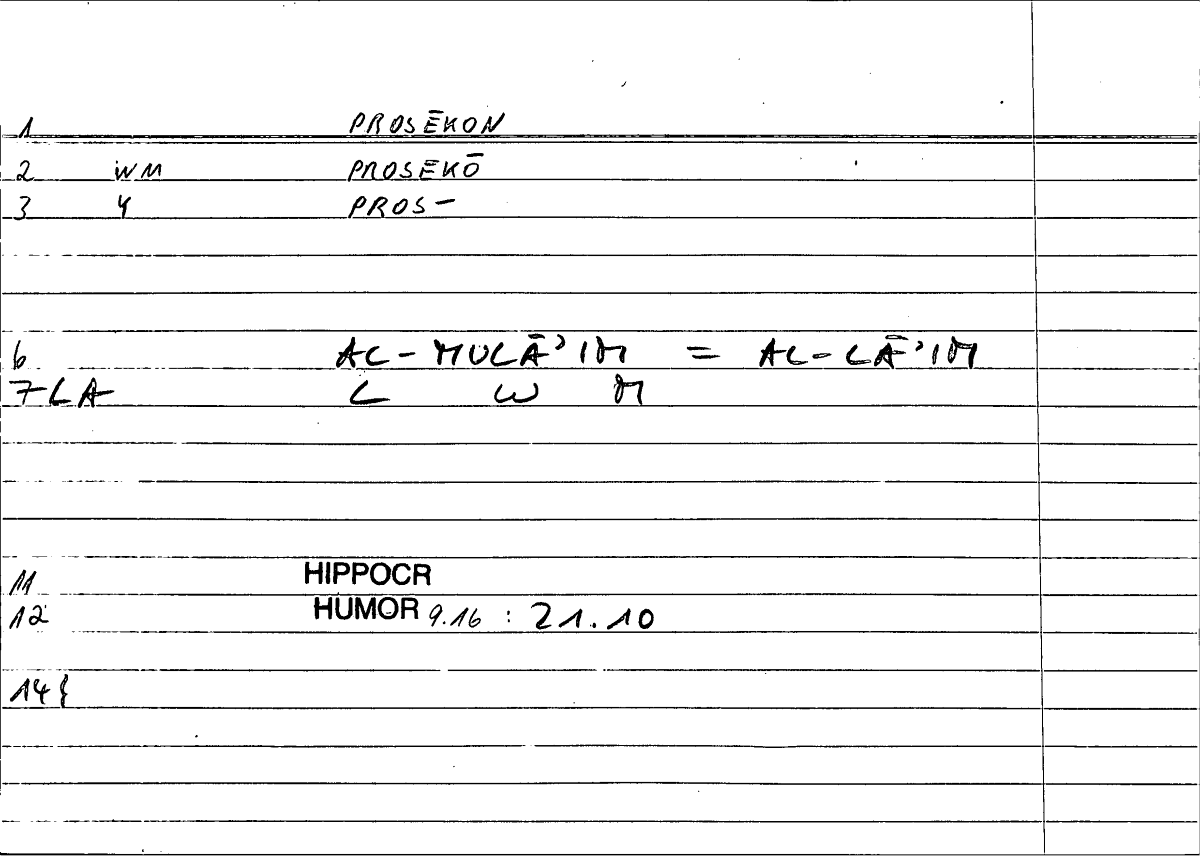 1 PROSĒKON
2 WM PROSĒKŌ
3 4 PROS-
6 AL-MULĀ'IM = AL-LĀ'IM
7LA L W M
11 HIPPOCR
12 HUMOR 9.16 : 21.10
14{